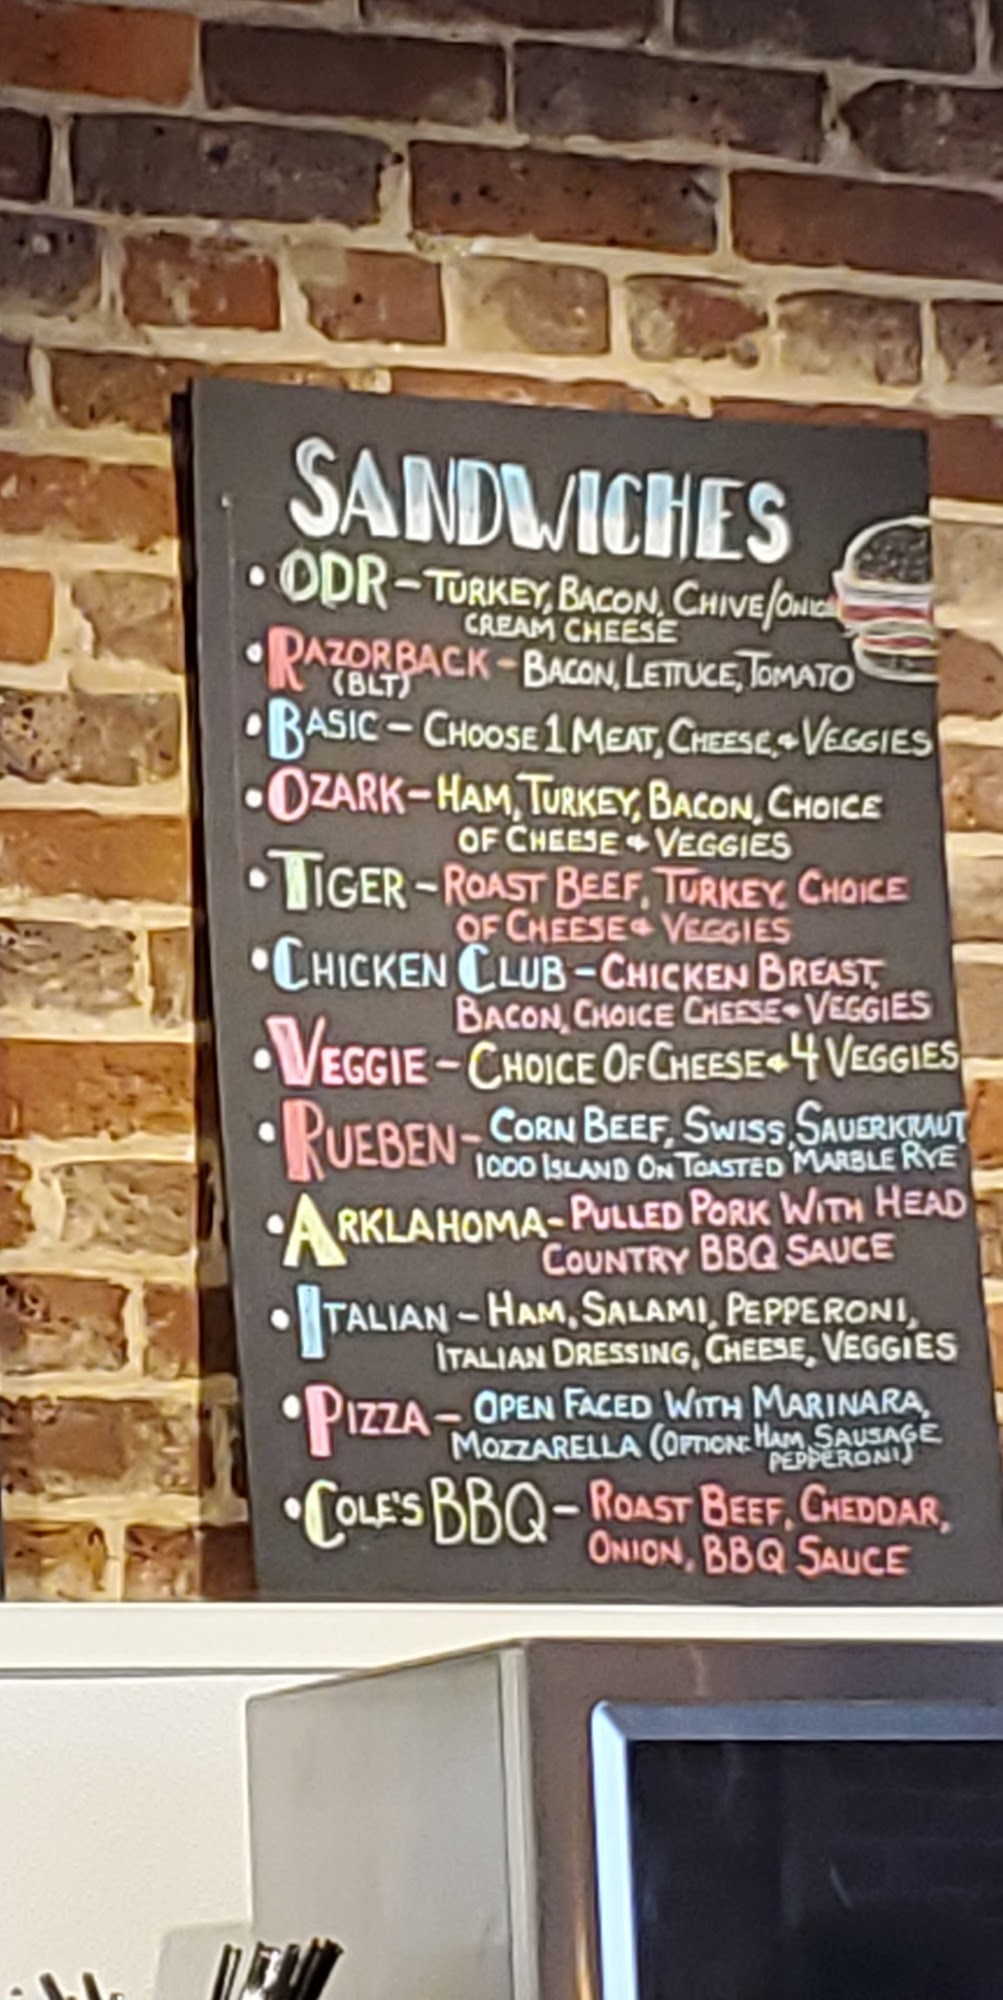 SANDWICHES
• ODR – TURKEY, BACON, CHIVE/ONION
CREAM CHEESE
• RAZORBACK – BACON, LETTUCE, TOMATO
(BLT)
• BASIC – CHOOSE 1 MEAT, CHEESE, + VEGGIES
• OZARK – HAM, TURKEY, BACON, CHOICE
OF CHEESE + VEGGIES
• TIGER – ROAST BEEF, TURKEY, CHOICE
OF CHEESE + VEGGIES
• CHICKEN CLUB – CHICKEN BREAST,
BACON, CHOICE CHEESE + VEGGIES
• VEGGIE – CHOICE OF CHEESE + 4 VEGGIES
• RUEBEN – CORN BEEF, SWISS, SAUERKRAUT
1000 ISLAND ON TOASTED MARBLE RYE
• ARKLAHOMA – PULLED PORK WITH HEAD
COUNTRY BBQ SAUCE
• ITALIAN – HAM, SALAMI, PEPPERONI,
ITALIAN DRESSING, CHEESE, VEGGIES
• PIZZA – OPEN FACED WITH MARINARA,
MOZZARELLA (OPTION: HAM, SAUSAGE
PEPPERONI)
• COLE'S BBQ – ROAST BEEF, CHEDDAR,
ONION, BBQ SAUCE